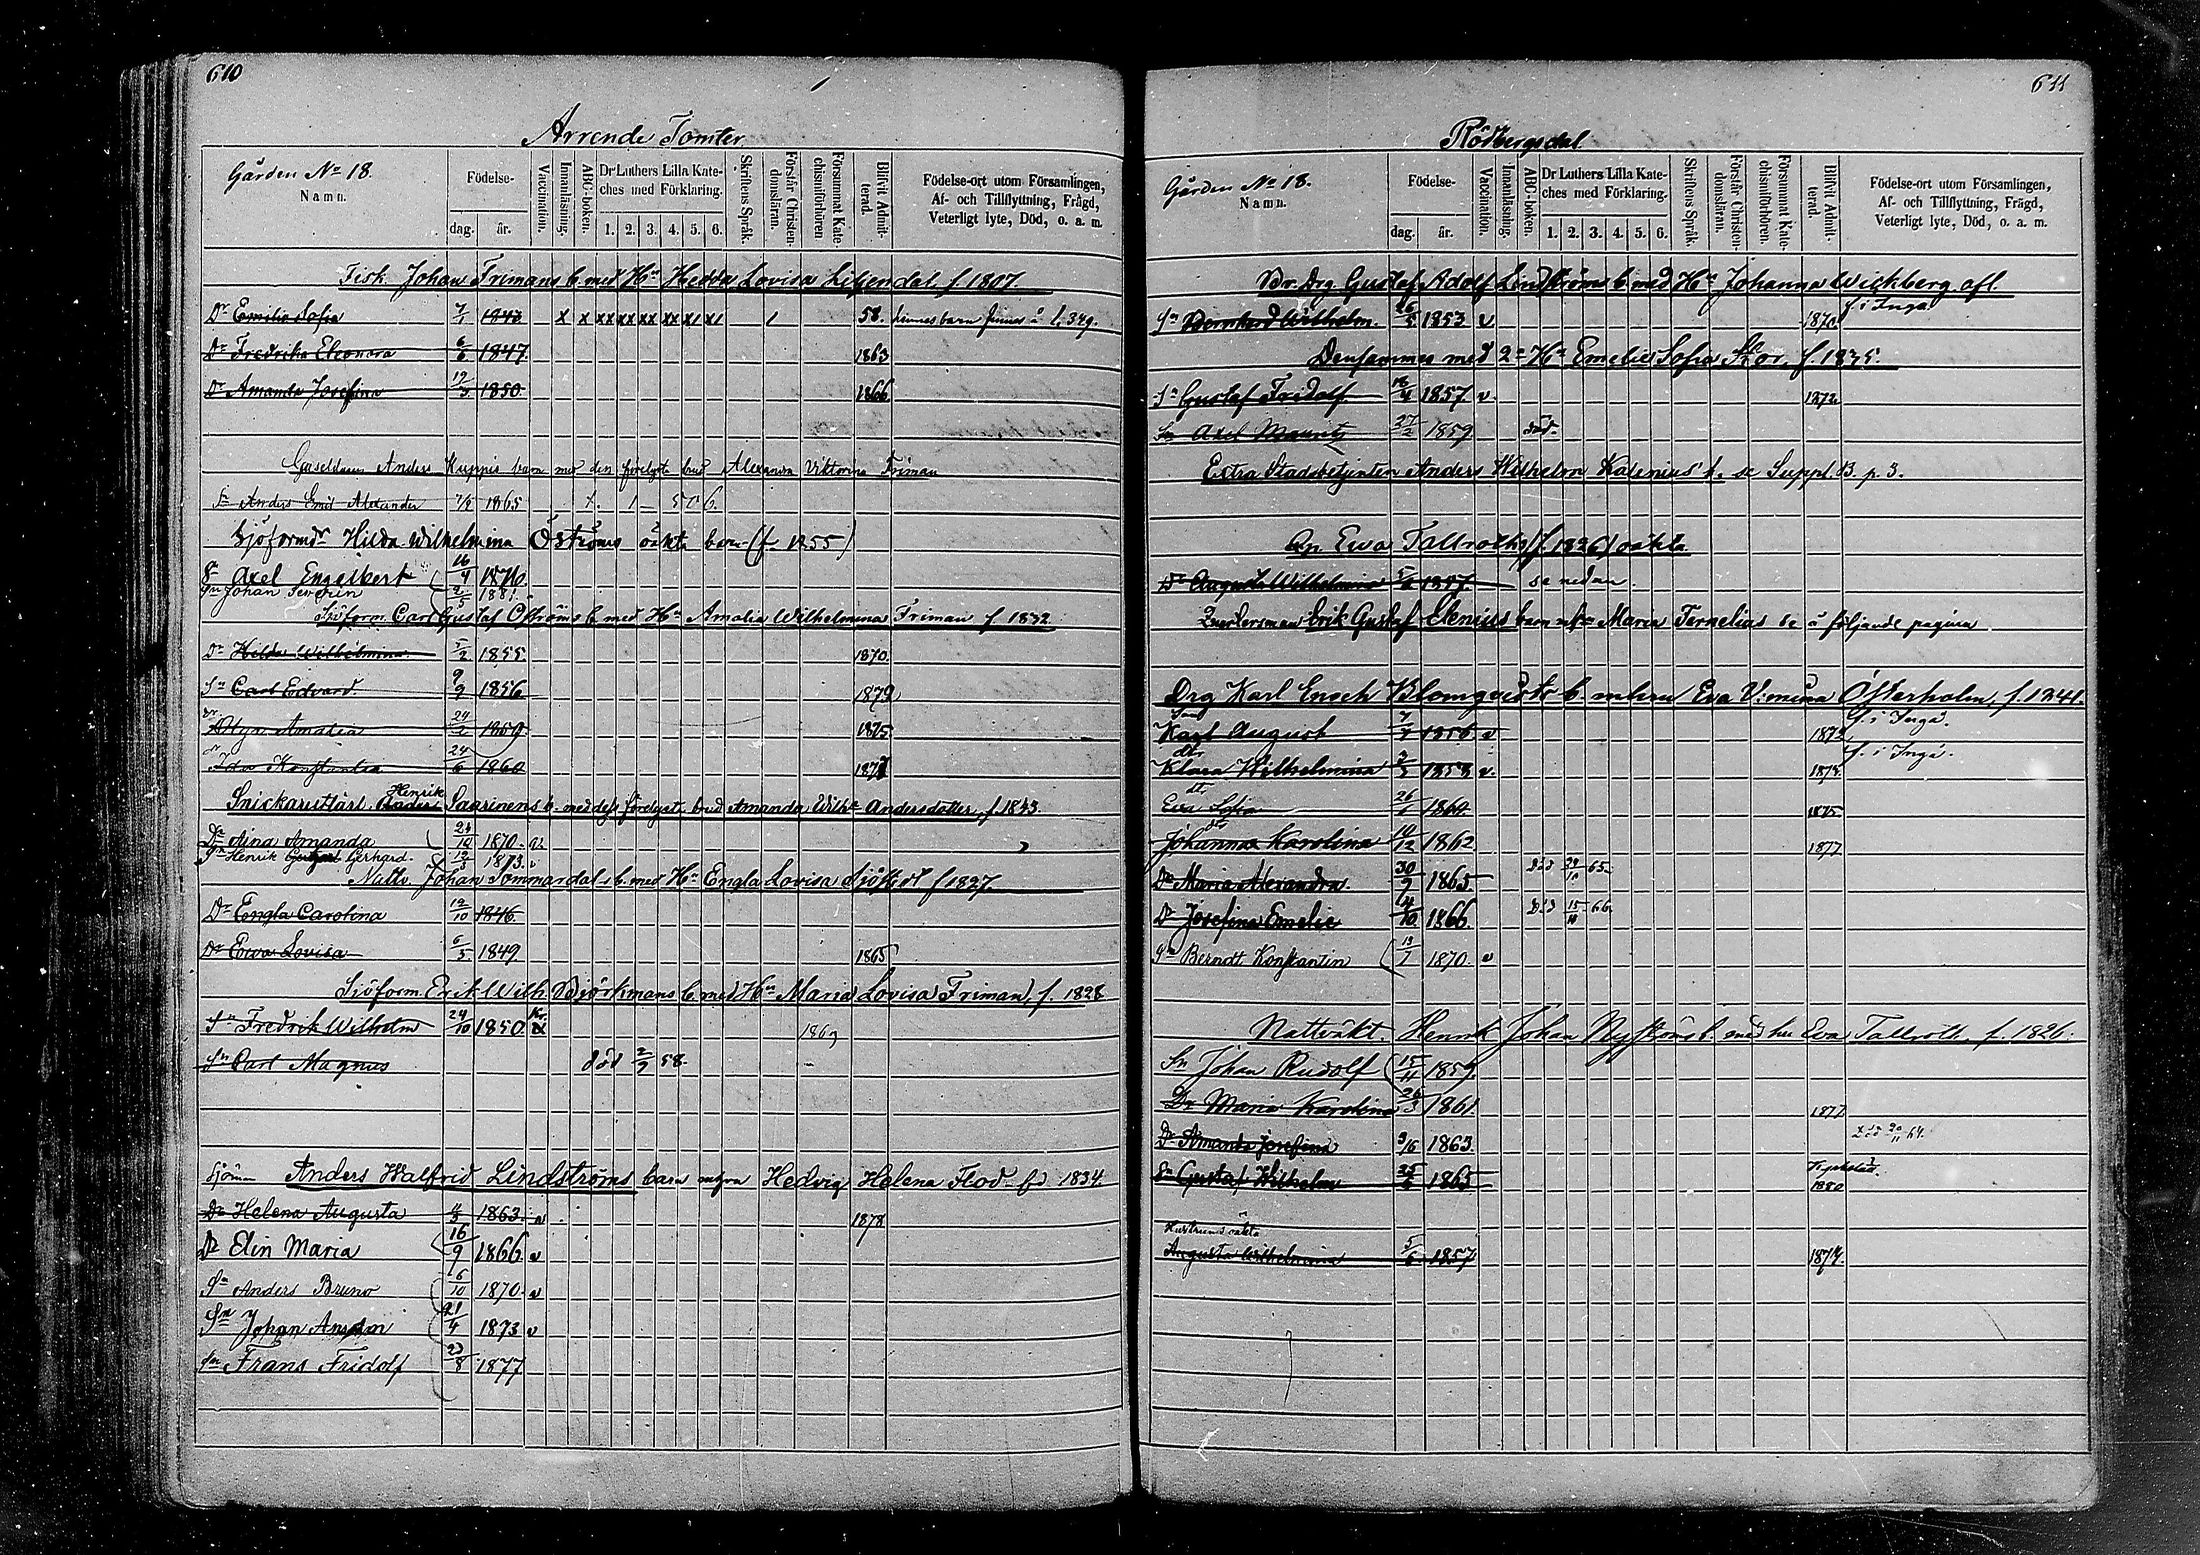 610
Arrende Tomter
Gården No 18.
Namn.
Födelse-
dag.
år.
Vaccination.
Innanläsning.
ABC-boken.
Dr Luthers Lilla Kate-
ches med Förklaring.
1. 2. 3. 4. 5. 6.
Skriftens Språk.
Förstår Christen-
domsläran.
Försummat Kate-
chismiförhören
Blifvit Admit-
terad.
Födelse-ort utom Församlingen,
Af- och Tillflyttning, Frägd,
Veterligt lyte, Död, o. a. m.
Fisk. Johan Frimans b. med Hu Hedda Lovisa Liljendal f. 1807.
Dr Emilia Sofia 7/1 1843 x x xx xx xx xx x1 x1 1 58. hennes barn finnes å f. 349.
Dr Fredrika Eleonora 6/6 1847. 1863
Dr Amanda Josefina 19/3 1850. 1866
Anders Kuppis barn med den förelofte brud Alexandra Viktorina Friman
Sn Anders Emil Alexander 1865
Sjöformdr Hilda Wilhelmina Öströms oäkta barn (f. 1855)
Sn Axel Engelbert 16/4 1876.
Sn Johan Severin 2/5 1881
Sjöform. Carl Gustaf Öströms b. med Hu Amalia Wilhelmina Friman f. 1832
Dr Hilda Wilhelmina 5/2 1855. 1870.
Sn Carl Edvard 9/9 1856 1872
dr Amalia 24/2 1859 1875
dr Ida Konstantia 24/6 1860 1877
Snickareutlärl. Henrik Saarinens b. med dess förelofte brud Amanda Wilha Andersdotter, f. 1843.
Dr Aina Amanda 24/10 1870. v.
Sn Henrik Gerhard. 12/3 1873. v
Natio Johan Sommardals b. med Hu Engla Lovisa Sjöstedt f 1827.
Dr Engla Carolina 19/10 1846
Dr Ewa Lovisa 6/5 1849 1865
Sjöform. Erik Wilh. Björkmans b. med Hu Maria Lovisa Friman, f. 1828
Sn Fredrik Wilhelm 24/10 1850 1869
Sn Carl Magnus död 2/9 58.
Sjöman Anders Walfrid Lindströms barn mhru Hedvig Helena Flod fd 1834.
Dr Helena Augusta 4/3 1863. v 1878
Dr Elin Maria 16/9 1866. v
Sn Anders Bruno 16/10 1870. v
Sn Johan Anselm 21/4 1873 v
Sn Frans Fridolf 23/8 1877
611
Rödbergsdal
Gården No 18.
Namn.
Födelse-
dag.
år.
Vaccination.
Innanläsning.
ABC-boken.
Dr Luthers Lilla Kate-
ches med Förklaring.
1. 2. 3. 4. 5. 6.
Skriftens Språk.
Förstår Christen-
domsläran.
Försummat Kate-
chismiförhören.
Blifvit Admit-
terad.
Födelse-ort utom Församlingen,
Af- och Tillflyttning, Frägd,
Veterligt lyte, Död, o. a. m.
Br. Drg. Gustaf Adolf Lindströms b. med Hu Johanna Wickberg afl
Sn Bernhard Wilhelm. 26/5 1853 v 1870 f. i Inga.
Densammes med 2a Hu Emelie Sofia f. 1835.
Sn Gustaf Fridolf 18/4 1857. v 1872
Sn Axel Mauritz 27/2 1859 död.
Extra Stadsbetjenten Anders Wilhelm Kalenius' b. se Suppl. B. p. 3.
Qp. Ewa Tallroths (f. 1826) oäkta
Dr Augusta Wilhelmina 5/6 1857. se nedan.
Erik Gustaf Elenius barn mhu Maria Ternelius se å följande pagina
Drg Karl Enoch Blomqvists b. mhru Eva V:onena Österholm, f. 1841.
Son Karl August 7/7 1856. v 1872 f. i Inga.
dtr Klara Wilhelmina 2/3 1858 v. 1874. f. i Inga.
dtr Eva Sofia 26/1 1860. 1875
dtr Johanna Karolina 10/12 1862 1877
Dr Maria Alexandra 30/9 1865 Död 29/10 65.
Dr Josefina Emelie 4/10 1866. Död 15/10 66.
Sn Berndt Konstantin 13/7 1870. v
Nattväkt. Henrik Johan Nyströms b. med hu Eva Tallroth, f. 1826.
Sn Johan Rudolf 15/11 1859.
Dr Maria Karolina 26/3 1861. 1877
Dr Amanda Josefina 9/10 1863. Död 20/11 64.
Sn Gustaf Wilhelm 25/5 1865 1880
Hustruns oäkta
Augusta Wilhelmina 5/6 1857. 1874.